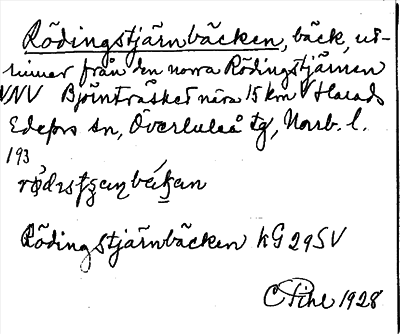 Rödingstjärnbäcken, bäck, ut-
rinner från den norra Rödingstjärnen
NNV Björnträsket nära 15 km Harads
Edefors sn, Överluleå tg, Norrb. l.
193
Rödingstjärnbäcken KG 29SV
C Pihl 1928